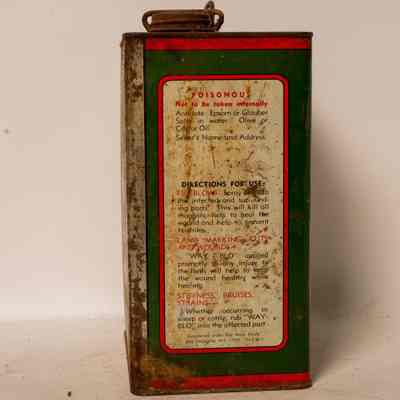 POISONOUS
Not to be taken internally
Antidote Epsom or Glauber
Salts in water. Olive or
Castor Oil.
Seller's Name and Address
DIRECTIONS FOR USE:-
FLY BLOWN Spray
the infected and surround-
ing parts. This will kill all
maggots, help to heal the
wound and help to prevent
LAMB MARKING, CUTS
AND WOUNDS
"WAY-BLO" applied
promptly to any injury to
the flesh will help to keep
the wound healthy while
healing.
STIFFNESS, BRUISES,
STRAINS
Whether occurring in
sheep or cattle, rub "WAY-
BLO" into the affected part